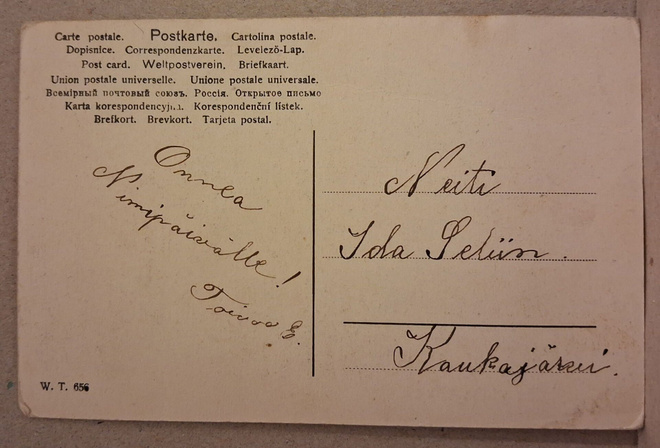 Carte postale. Postkarte. Cartolina postale.
Dopisnice. Correspondenzkarte. Levelező-Lap.
Post card. Weltpostverein. Briefkaart.
Union postale universelle. Unione postale universale.
Всемірный почтовый союзъ. Россія. Открытое письмо
Karta korespondencyjna. Korespondenční lístek.
Brefkort. Brevkort. Tarjeta postal.
Onnea
Nimipäivälle!
Toivoo E.
Neiti
Ida Seliin.
Kaukajärvi.
W. T. 656